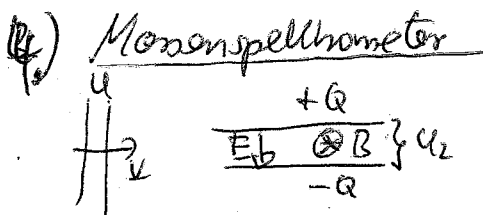 4.) Massenspektrometer
U
+Q
v
E, b ⊗ B } U₂
-Q